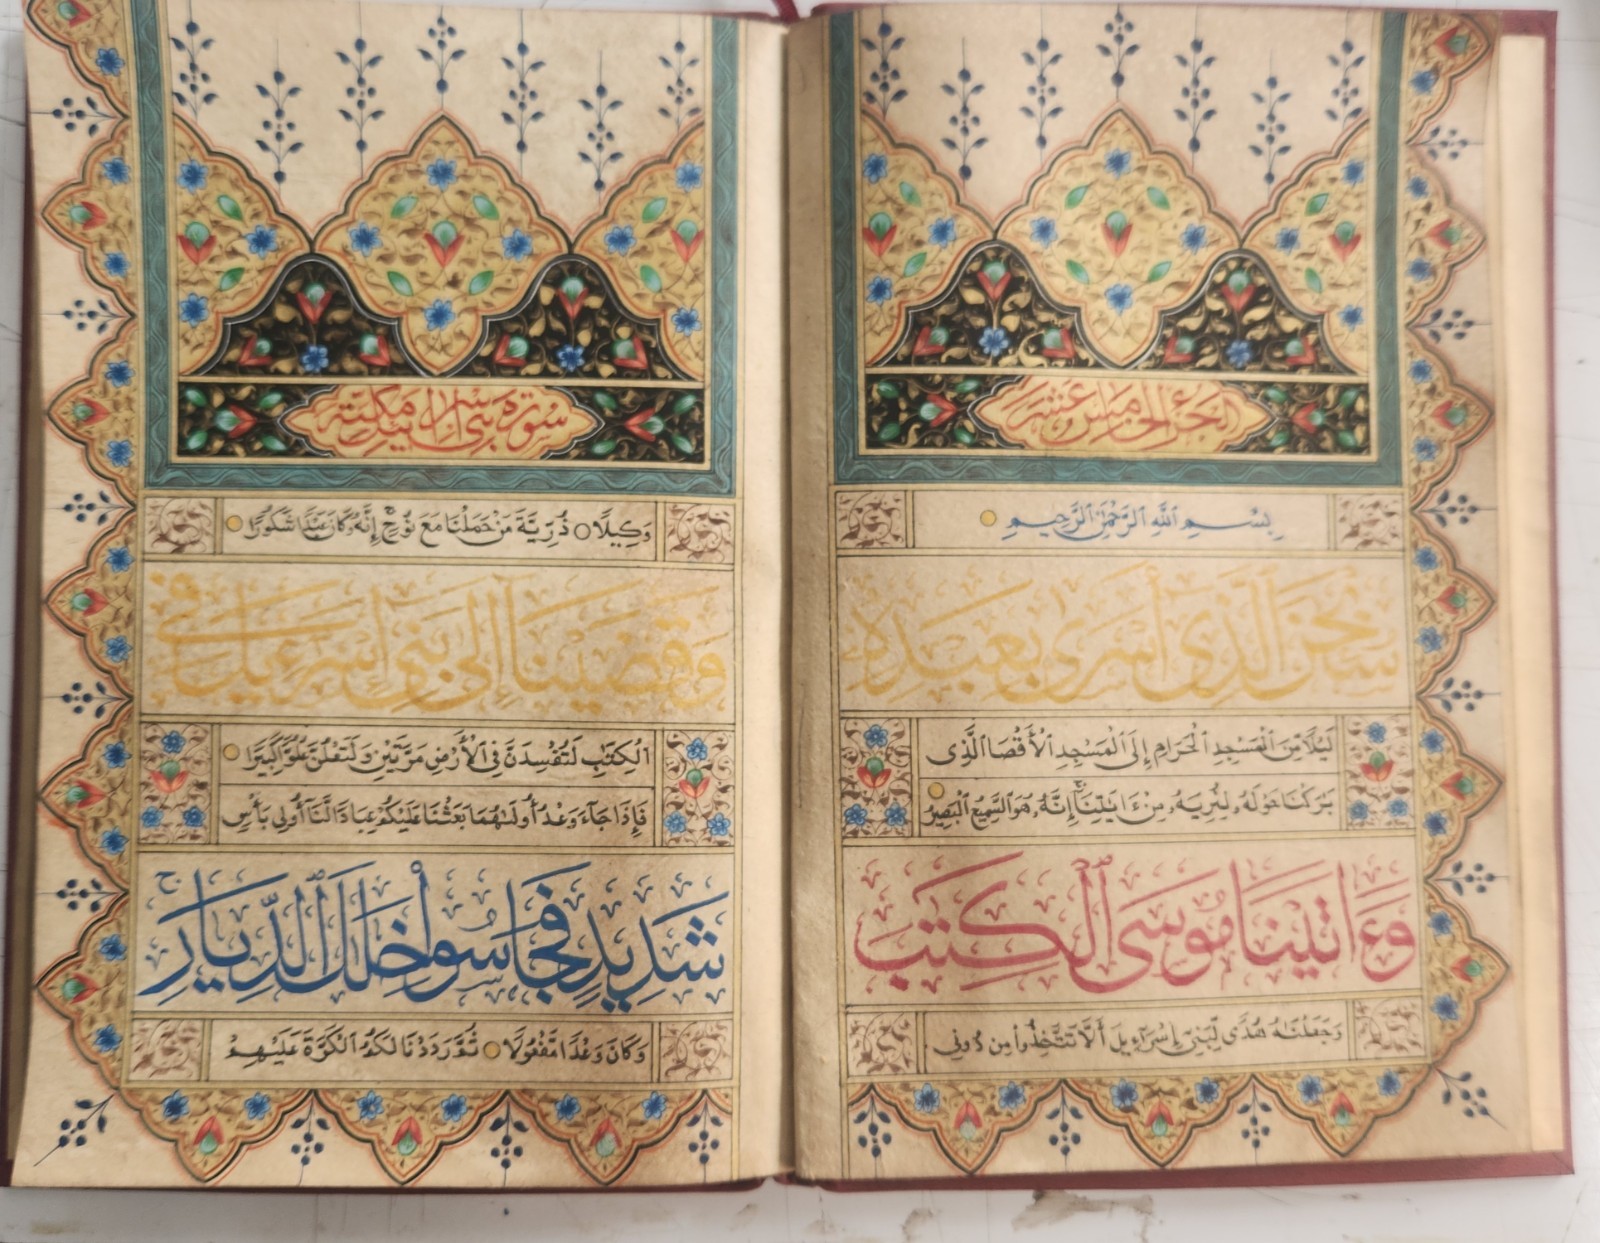 الجزء الخامس عشر
بِسْمِ ٱللَّهِ ٱلرَّحْمَٰنِ ٱلرَّحِيمِ
سُبْحَٰنَ ٱلَّذِى أَسْرَىٰ بِعَبْدِهِۦ
لَيْلًا مِّنَ ٱلْمَسْجِدِ ٱلْحَرَامِ إِلَى ٱلْمَسْجِدِ ٱلْأَقْصَا ٱلَّذِى
بَٰرَكْنَا حَوْلَهُۥ لِنُرِيَهُۥ مِنْ ءَايَٰتِنَآ إِنَّهُۥ هُوَ ٱلسَّمِيعُ ٱلْبَصِيرُ
وَءَاتَيْنَا مُوسَى ٱلْكِتَٰبَ
وَجَعَلْنَٰهُ هُدًى لِّبَنِىٓ إِسْرَٰٓءِيلَ أَلَّا تَتَّخِذُوا۟ مِن دُونِى
سورة بنی اسرائیل مكية
وَكِيلًا ذُرِّيَّةَ مَنْ حَمَلْنَا مَعَ نُوحٍ إِنَّهُۥ كَانَ عَبْدًا شَكُورًا
وَقَضَيْنَآ إِلَىٰ بَنِىٓ إِسْرَٰٓءِيلَ فِى
ٱلْكِتَٰبِ لَتُفْسِدُنَّ فِى ٱلْأَرْضِ مَرَّتَيْنِ وَلَتَعْلُنَّ عُلُوًّا كَبِيرًا
فَإِذَا جَآءَ وَعْدُ أُولَىٰهُمَا بَعَثْنَا عَلَيْكُمْ عِبَادًا لَّنَآ أُو۟لِى بَأْسٍ
شَدِيدٍ فَجَاسُوا۟ خِلَٰلَ ٱلدِّيَارِ
وَكَانَ وَعْدًا مَّفْعُولًا ثُمَّ رَدَدْنَا لَكُمُ ٱلْكَرَّةَ عَلَيْهِمْ